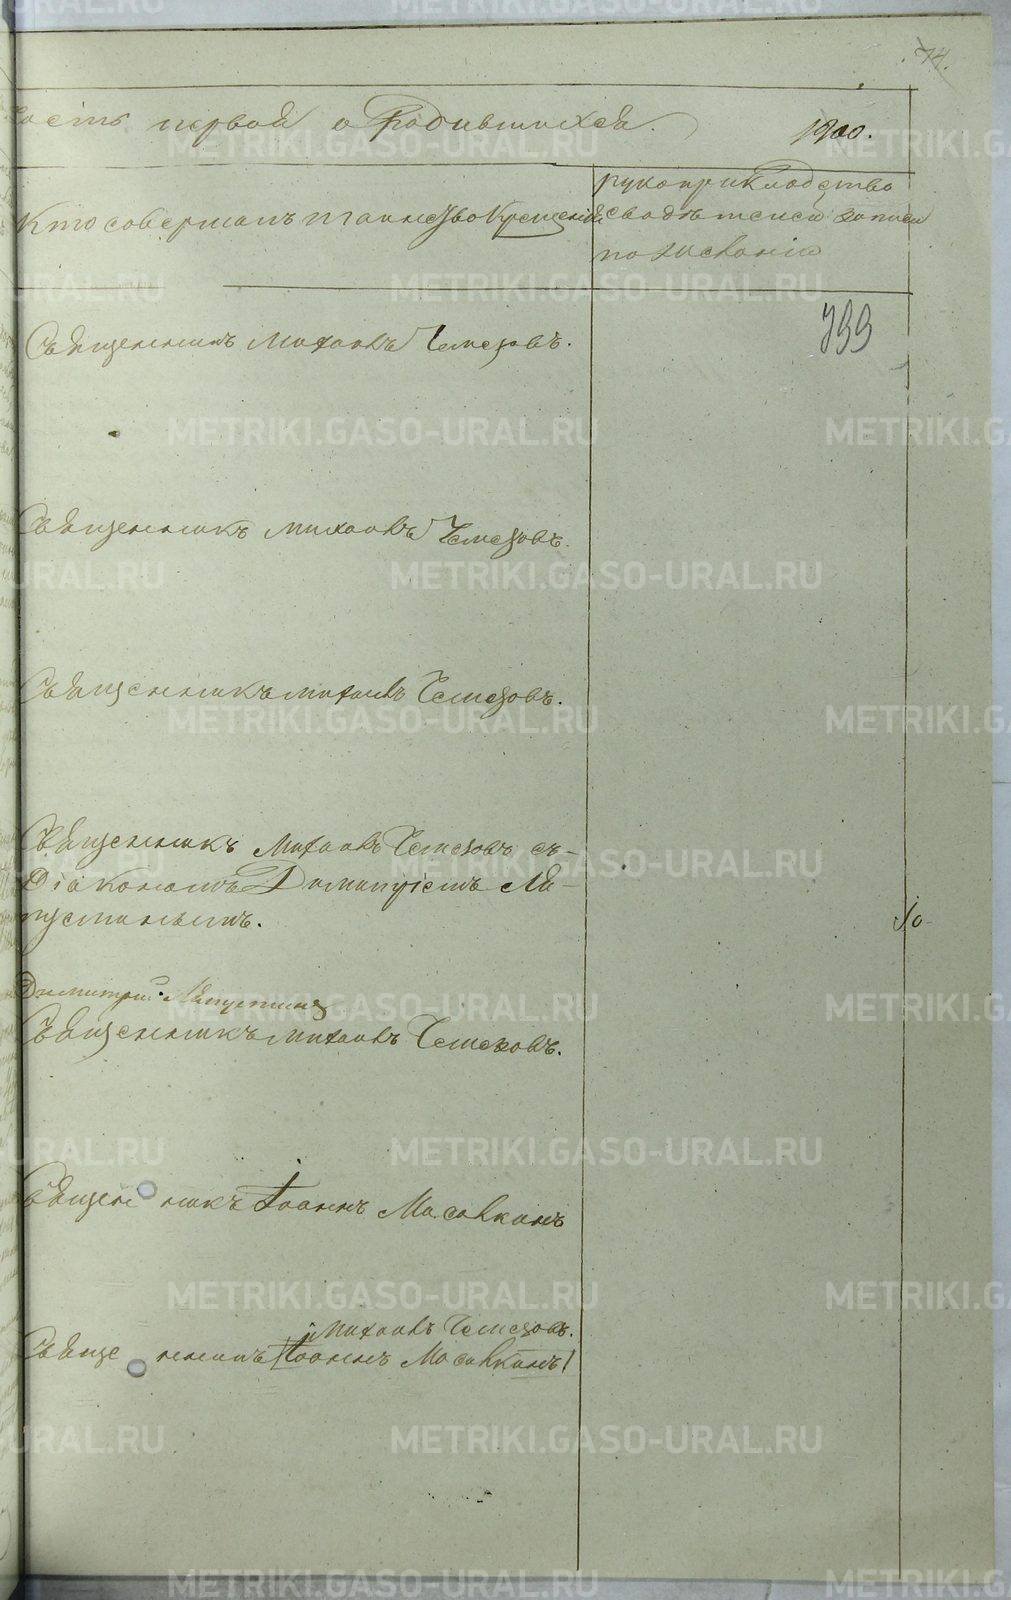 74.
часть первой о Родившихся. 1900.
Кто совершалъ таинство Крещенія
рукоприкладство
свидѣтелей записи
по желанію
799
Священникъ Михаилъ Чемезовъ.
Священникъ Михаилъ Чемезовъ.
Священникъ Михаилъ Чемезовъ.
Священникъ Михаилъ Чемезовъ съ
Діакономъ Димитріемъ Ля-
пустинымъ.
Димитрій Ляпустинъ
Священникъ Михаилъ Чемезовъ.
Священникъ Іоаннъ
Михаилъ Чемезовъ.
Священникъ Іоаннъ
METRIKI.GASO-URAL.RU